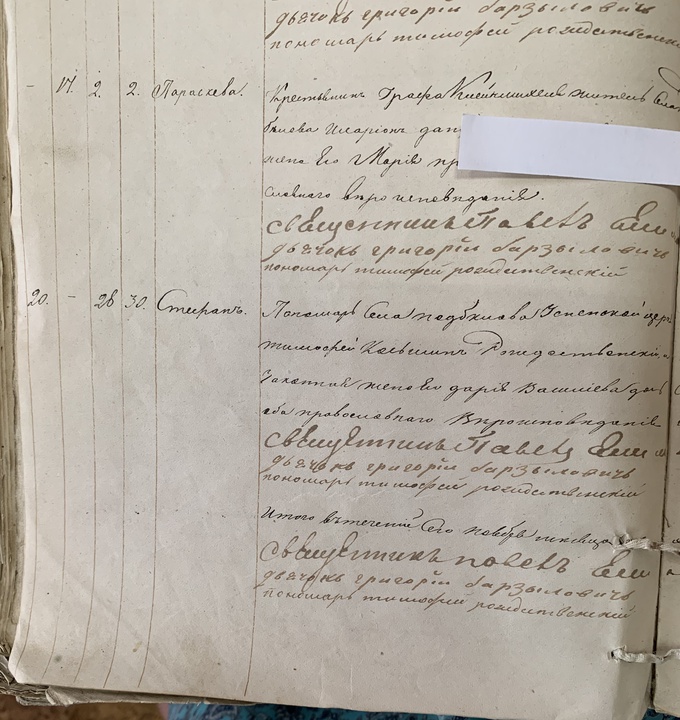 дьячокъ григорій барзыловичъ
пономарь тимофей рождественскій
– 17. 2. 2. Параскева. Крестьянинъ Графа Клейнмихеля житель Села
Иларіонъ
жена Его Марія
славнаго вѣроисповѣданія.
священникъ Павелъ
дьячокъ григорій барзыловичъ
пономарь тимофей рождественскій
20. – 28 30. Стефанъ. Пономарь Села Успенской
тимофей Рождественскій и
Законная жена Его дарія Васильева
оба православнаго Вѣроисповѣданія
священникъ Павелъ
дьячокъ григорій барзыловичъ
пономарь тимофей рождественскій
Итого въ теченіи Сего ноября месяца
священникъ павелъ
дьячокъ григорій барзыловичъ
пономарь тимофей рождественскій